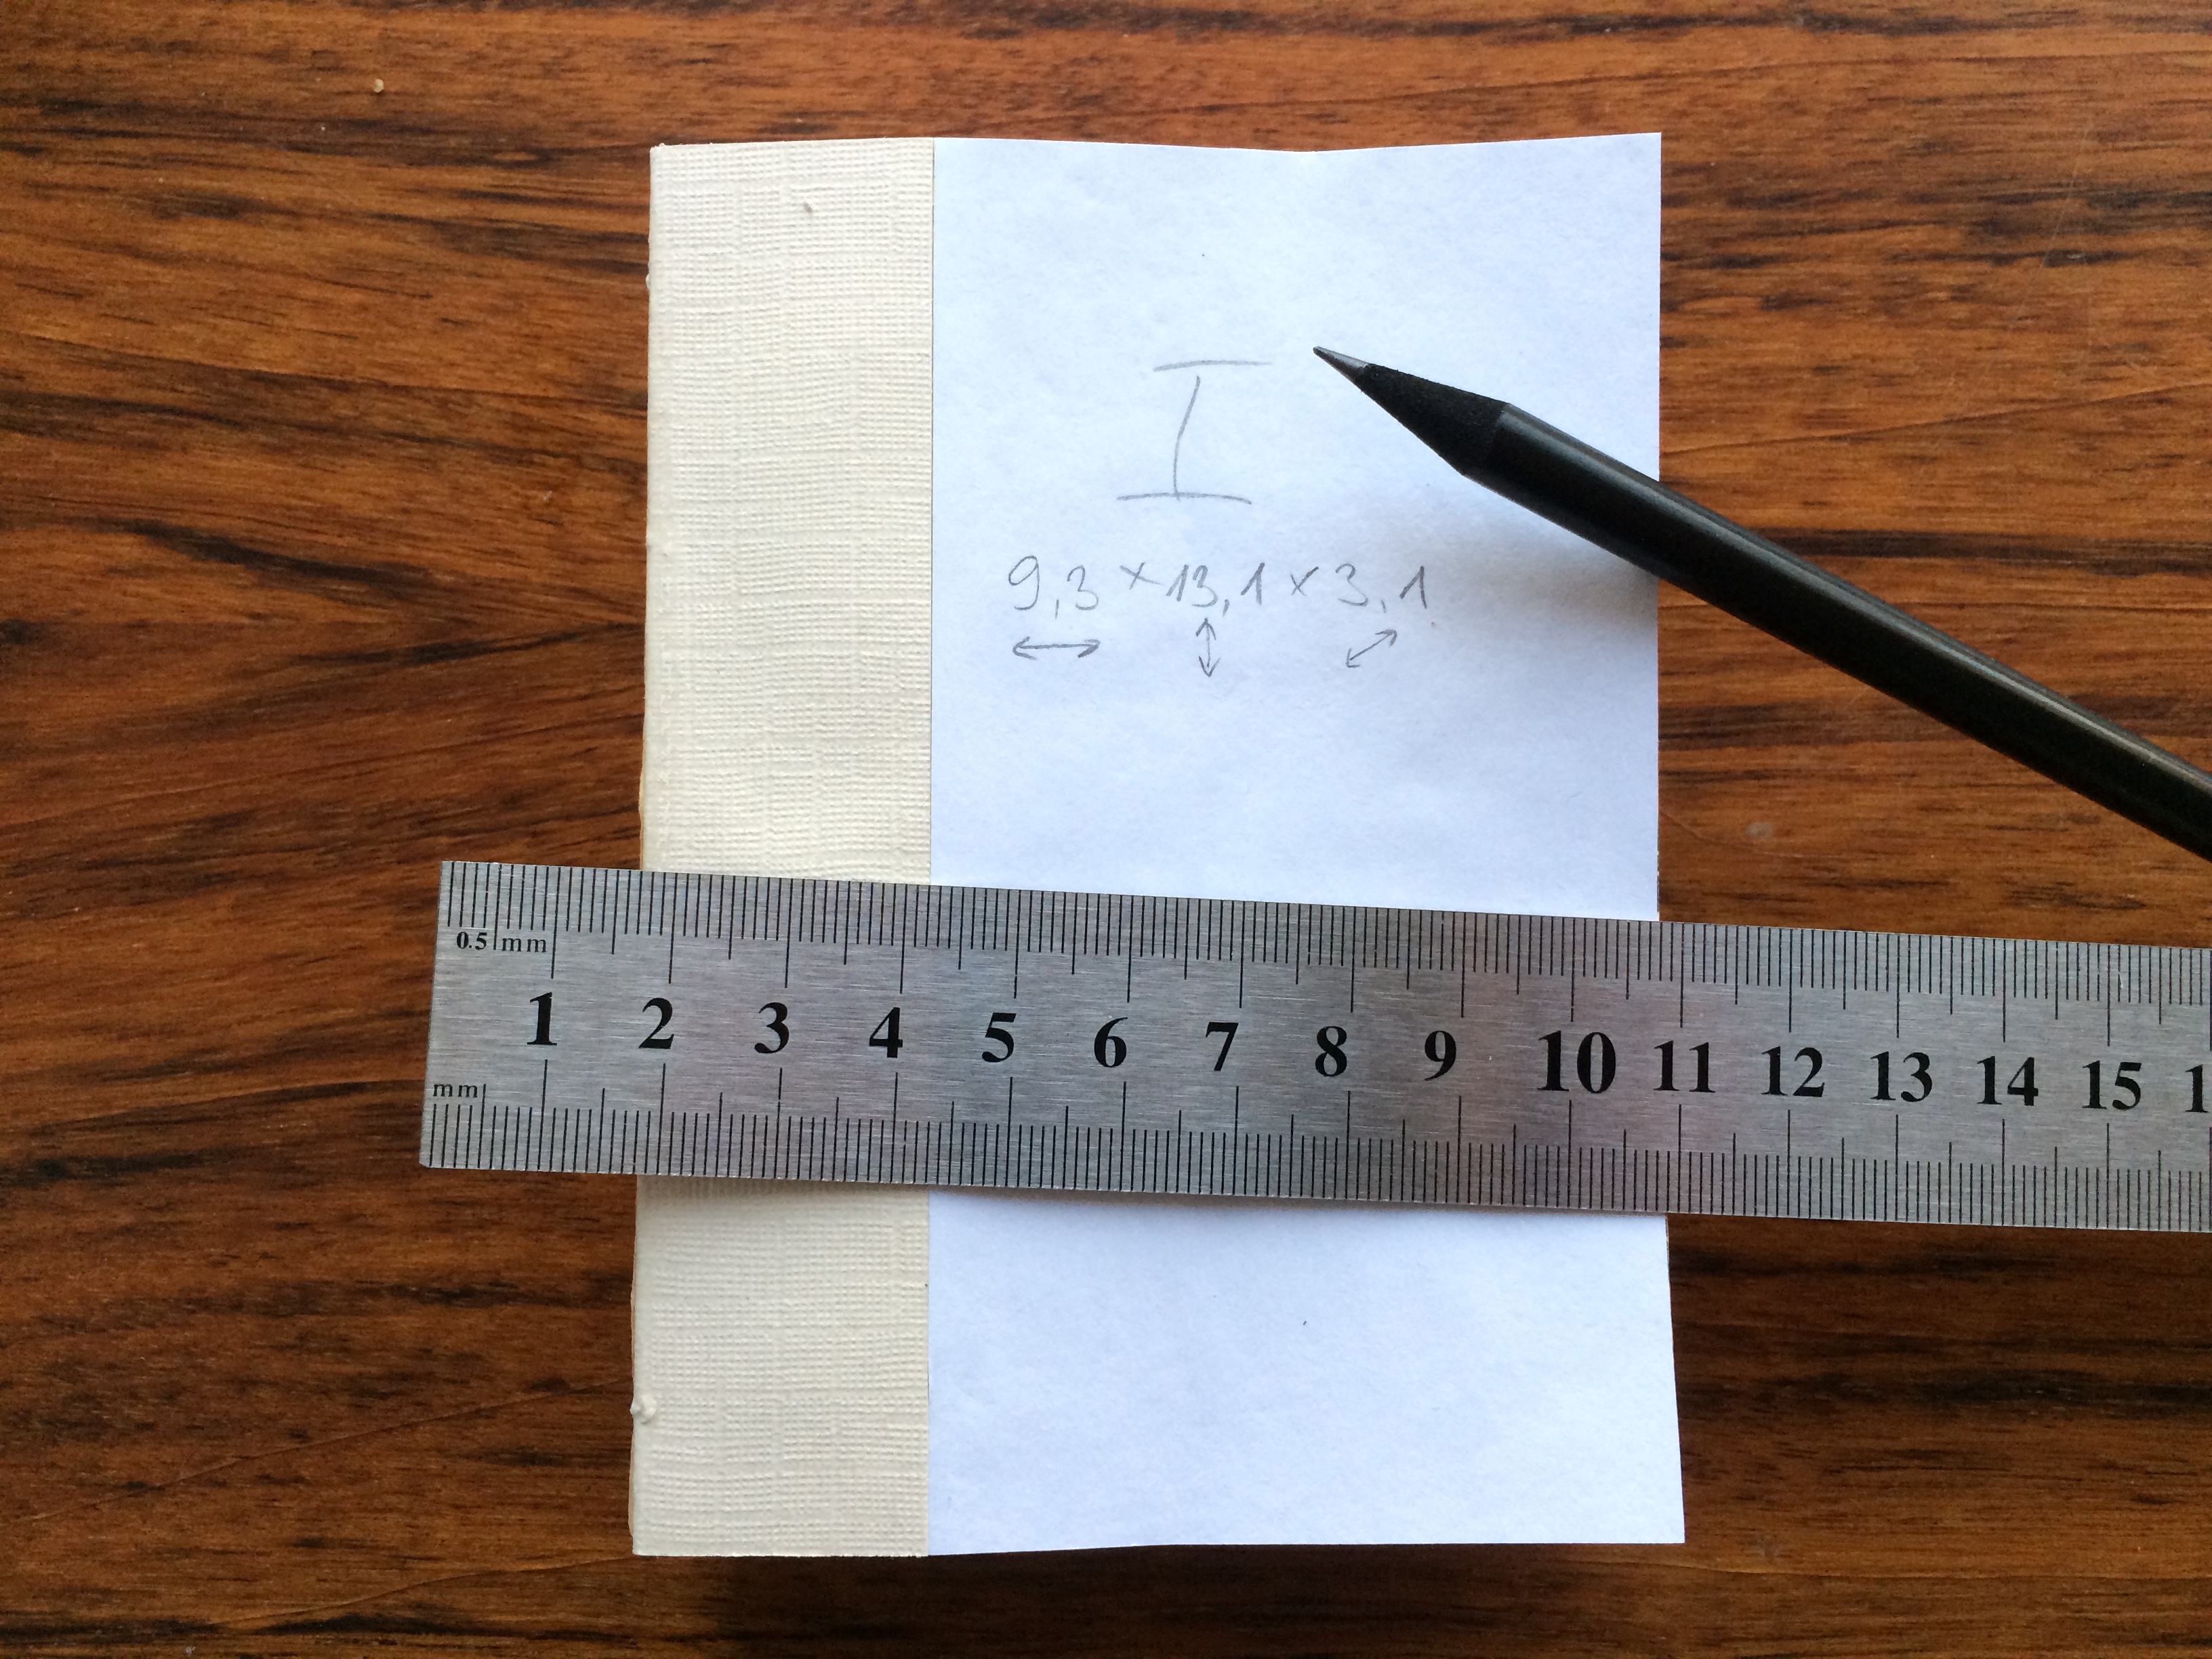 I
9,3 × 13,1 × 3,1
0.5 mm
1 2 3 4 5 6 7 8 9 10 11 12 13 14 15 1
mm